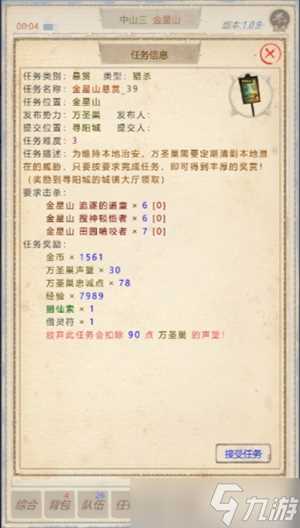 00:04
中山三 金星山
版本:1.0.9
任务信息
任务类别：悬赏 类型：猎杀
任务名称：金星山悬赏_39
任务位置：金星山
发布势力：万圣巢 发布人：
提交位置：寻阳城 提交人：
任务难度：3
任务描述：为维持本地治安，万圣巢需要定期清剿本地潜
在的威胁，只要按要求完成任务，即可得到丰厚的奖赏！
（奖励到寻阳城的城镇大厅领取）
要求击杀：
金星山 追逐的通灵 × 6 [0]
金星山 搜神轻悟者 × 6 [0]
金星山 田园嘀咬者 × 7 [0]
任务奖励：
金币 × 1561
万圣巢声望 × 30
万圣巢忠诚点 × 78
经验 × 7989
捆仙索 × 1
借灵符 × 1
放弃此任务会扣除 90 点 万圣巢 的声望！
接受任务
综合 背包 队伍 任
4
26
九游